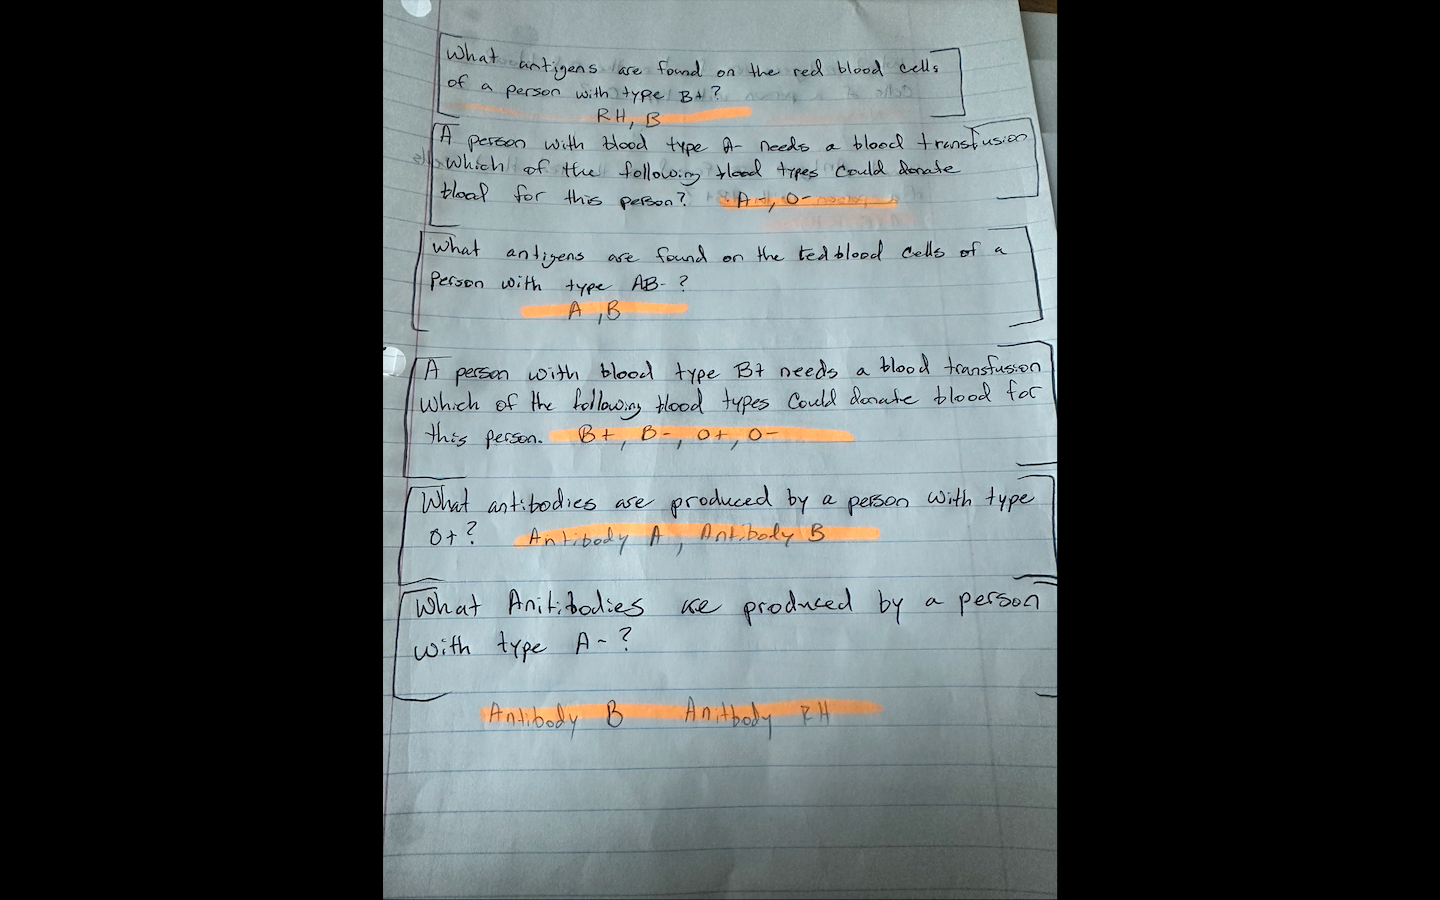 What antigens are found on the red blood cells
of a person with type B+?
RH, B
A person with blood type A- needs a blood transfusion
Which of the following blood types could donate
blood for this person? A-, O-
What antigens are found on the ted blood cells of a
Person with type AB- ?
A ,B
A person with blood type B+ needs a blood transfusion
Which of the following blood types could donate blood for
this person. B+, B-, O+, O-
What antibodies are produced by a person with type
O+? Antibody A, Antibody B
What Anitibodies are produced by a person
with type A- ?
Antibody B Anitbody RH